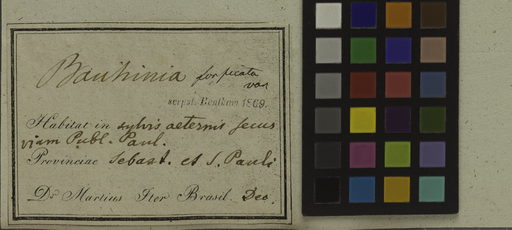 Bauhinia forficata
var
scrpst. Bentham 1869.
Habitat in sylvis aeternis secus
viam Publ. Paul.
Provinciae Sebast. et S. Pauli
Dr. Martius Iter Brasil. Dec.